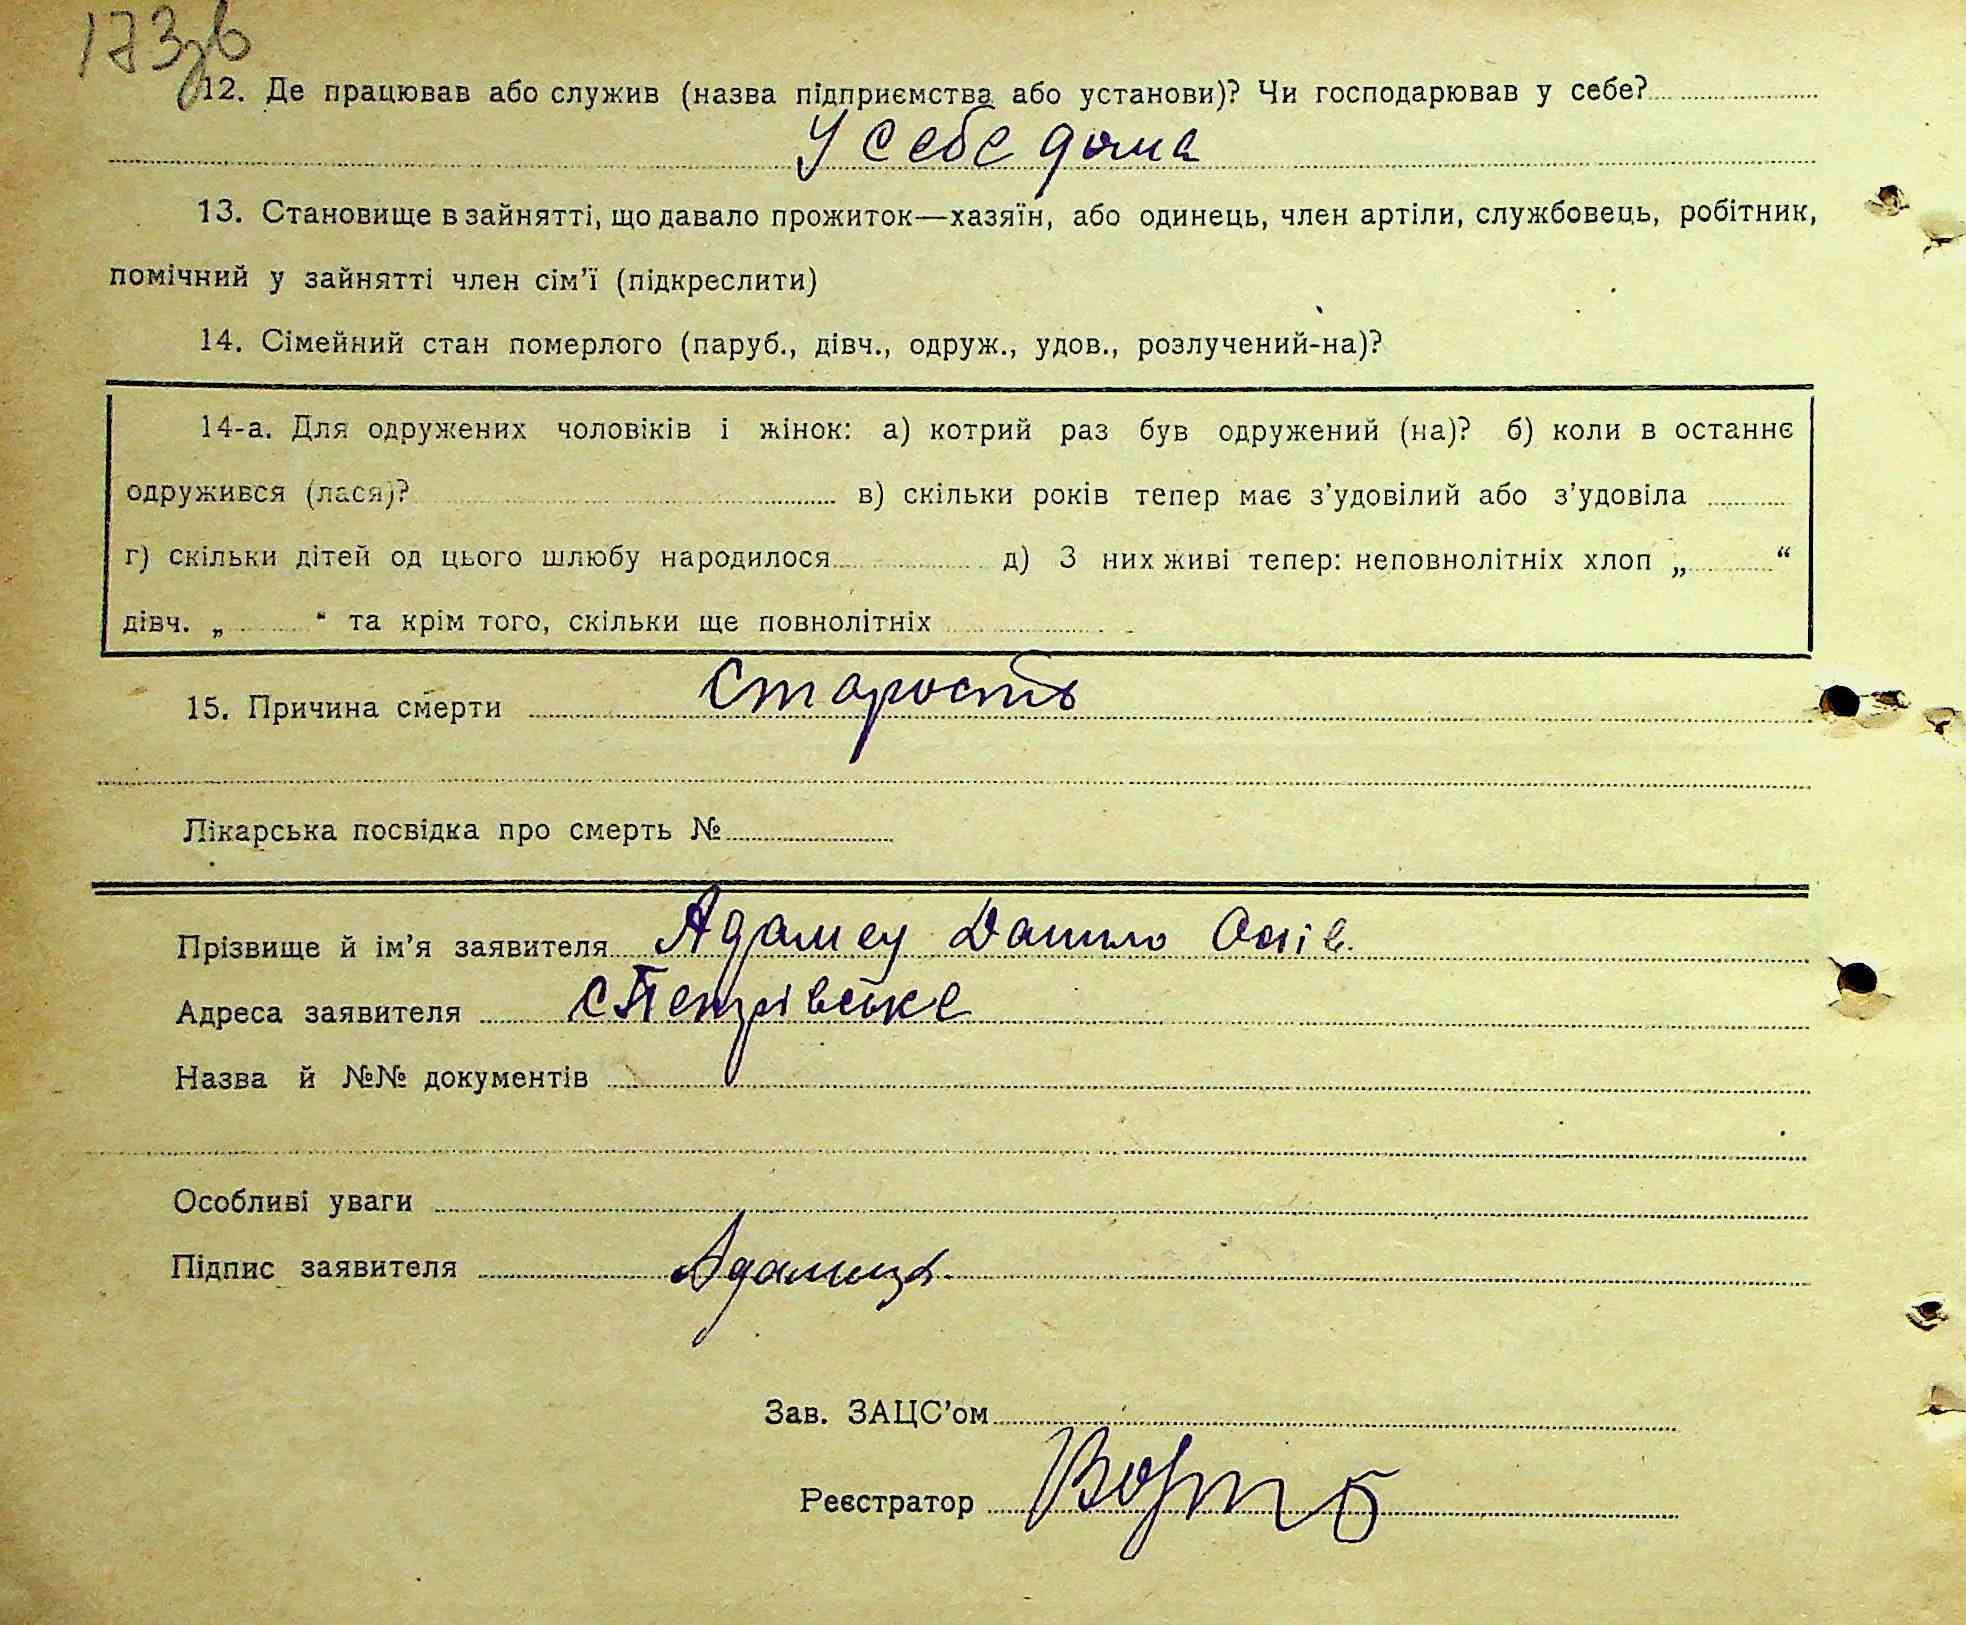 173зв
12. Де працював або служив (назва підприємства або установи)? Чи господарював у себе?
У себе дома
13. Становище в зайнятті, що давало прожиток—хазяїн, або одинець, член артіли, службовець, робітник,
помічний у зайнятті член сім'ї (підкреслити)
14. Сімейний стан померлого (паруб., дівч., одруж., удов., розлучений-на)?
14-а. Для одружених чоловіків і жінок: а) котрий раз був одружений (на)? б) коли в останнє
одружився (лася)? в) скільки років тепер має з'удовілий або з'удовіла
г) скільки дітей од цього шлюбу народилося д) З них живі тепер: неповнолітніх хлоп „ “
дівч. „ “ та крім того, скільки ще повнолітніх
15. Причина смерти Старость
Лікарська посвідка про смерть №
Прізвище й ім'я заявителя Адамец Данило
Адреса заявителя с Петрівське
Назва й №№ документів
Особливі уваги
Підпис заявителя
Зав. ЗАЦС'ом
Реєстратор